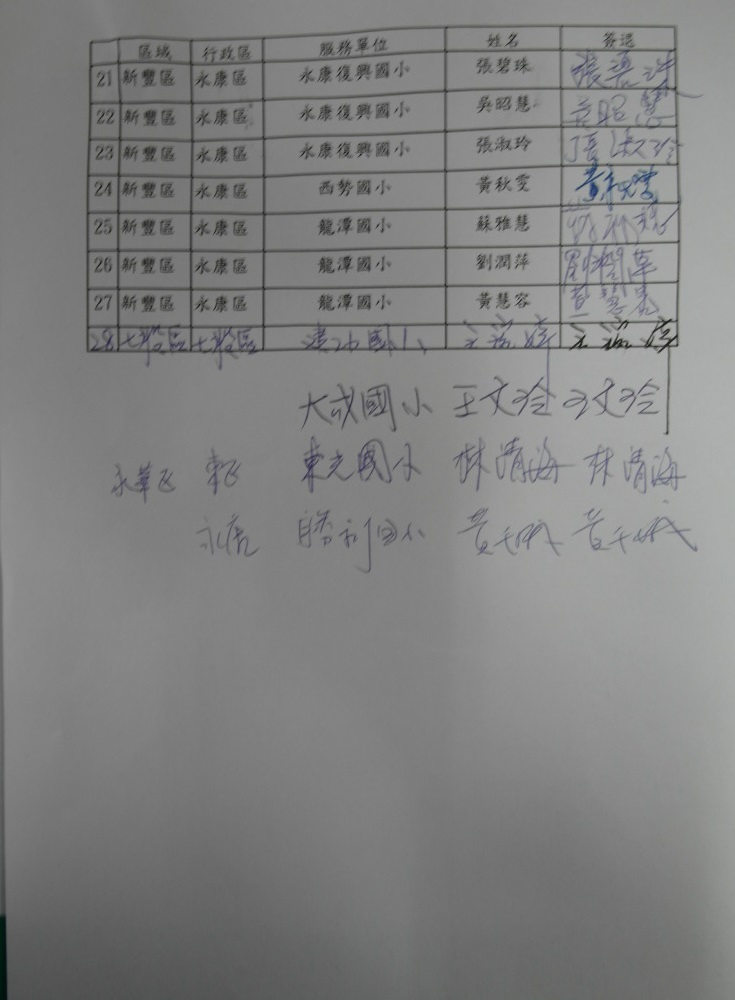 區域 行政區 服務單位 姓名 簽退
21 新豐區 永康區 永康復興國小 張碧珠 張碧珠
22 新豐區 永康區 永康復興國小 吳昭慧 吳昭慧
23 新豐區 永康區 永康復興國小 張淑玲 張淑玲
24 新豐區 永康區 西勢國小 黃秋雯 黃秋雯
25 新豐區 永康區 龍潭國小 蘇雅慧
26 新豐區 永康區 龍潭國小 劉潤萍 劉潤萍
27 新豐區 永康區 龍潭國小 黃慧容 黃慧容
28 國小
大成國小 王文玲 王文玲
永華區 東區 東光國小 林清海 林清海
永康 勝利國小